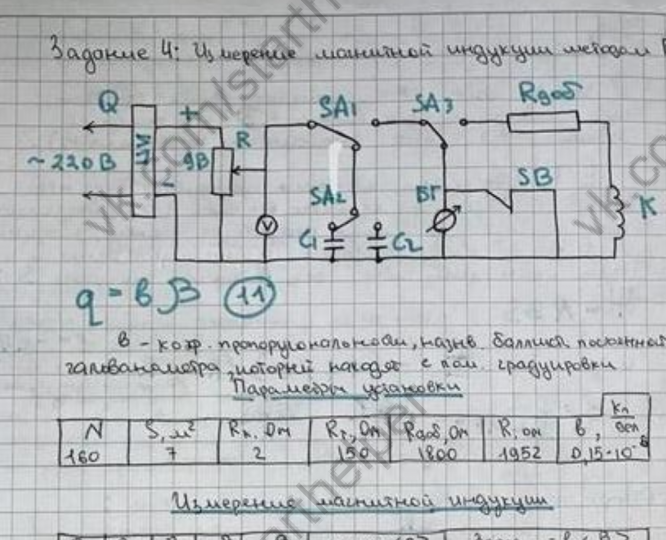 Задание 4: Измерение магнитной индукции методом
Q
+
SA1
SA3
Rдоб
~220В
9В
R
SA2
БГ
SB
K
V
C1
C2
-
q = в β (11)
в - коэф. пропорциональности, назыв. баллист. постоянной
гальванометра, который находят с пом. градуировки
Параметры установки
N S, м² Rк, Ом Rг, Ом Rдоб, Ом R, ом в, Кл/дел
160 7 2 150 1800 1952 0,15·10⁻⁸
Измерение магнитной индукции
vk.com/starthelper